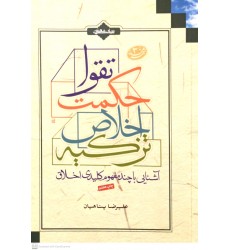 تقوا
حکمت
اخلاص
تزکیه
آشنایی با چند مفهوم کلیدی اخلاق
علیرضا پناهیان